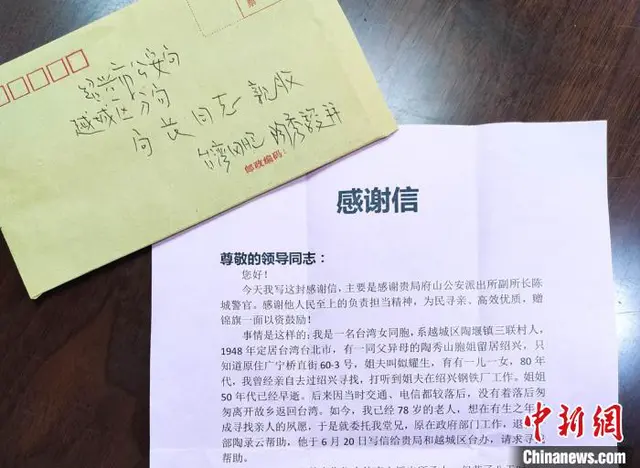 票
绍兴市公安局
越城区分局
局长同志 亲收
台湾同胞
邮政编码:
感谢信
尊敬的领导同志:
您好!
今天我写这封感谢信,主要是感谢贵局府山公安派出所副所长陈
城警官。感谢他人民至上的负责担当精神,为民寻亲、高效优质,赠
锦旗一面以资鼓励!
事情是这样的:我是一名台湾女同胞,系越城区陶堰镇三联村人,
1948 年定居台湾台北市,有一同父异母的陶秀山胞姐留居绍兴,只
知道原住广宁桥直街 60-3 号,姐夫叫姒耀生,育有一儿一女,80 年
代,我曾经亲自去过绍兴寻找,打听到姐夫在绍兴钢铁厂工作。姐姐
50 年代已经早逝。后来因当时交通、电信都较落后,没有着落后匆
匆离开故乡返回台湾。如今,我已经 78 岁的老人,想在有生之年
成寻找亲人的夙愿,于是就委托我堂兄,原在政府部门工作,退
部陶录云帮助,他于 6 月 20 日写信给贵局和越城区台办,请求
帮助。
中新网
Chinanews.com